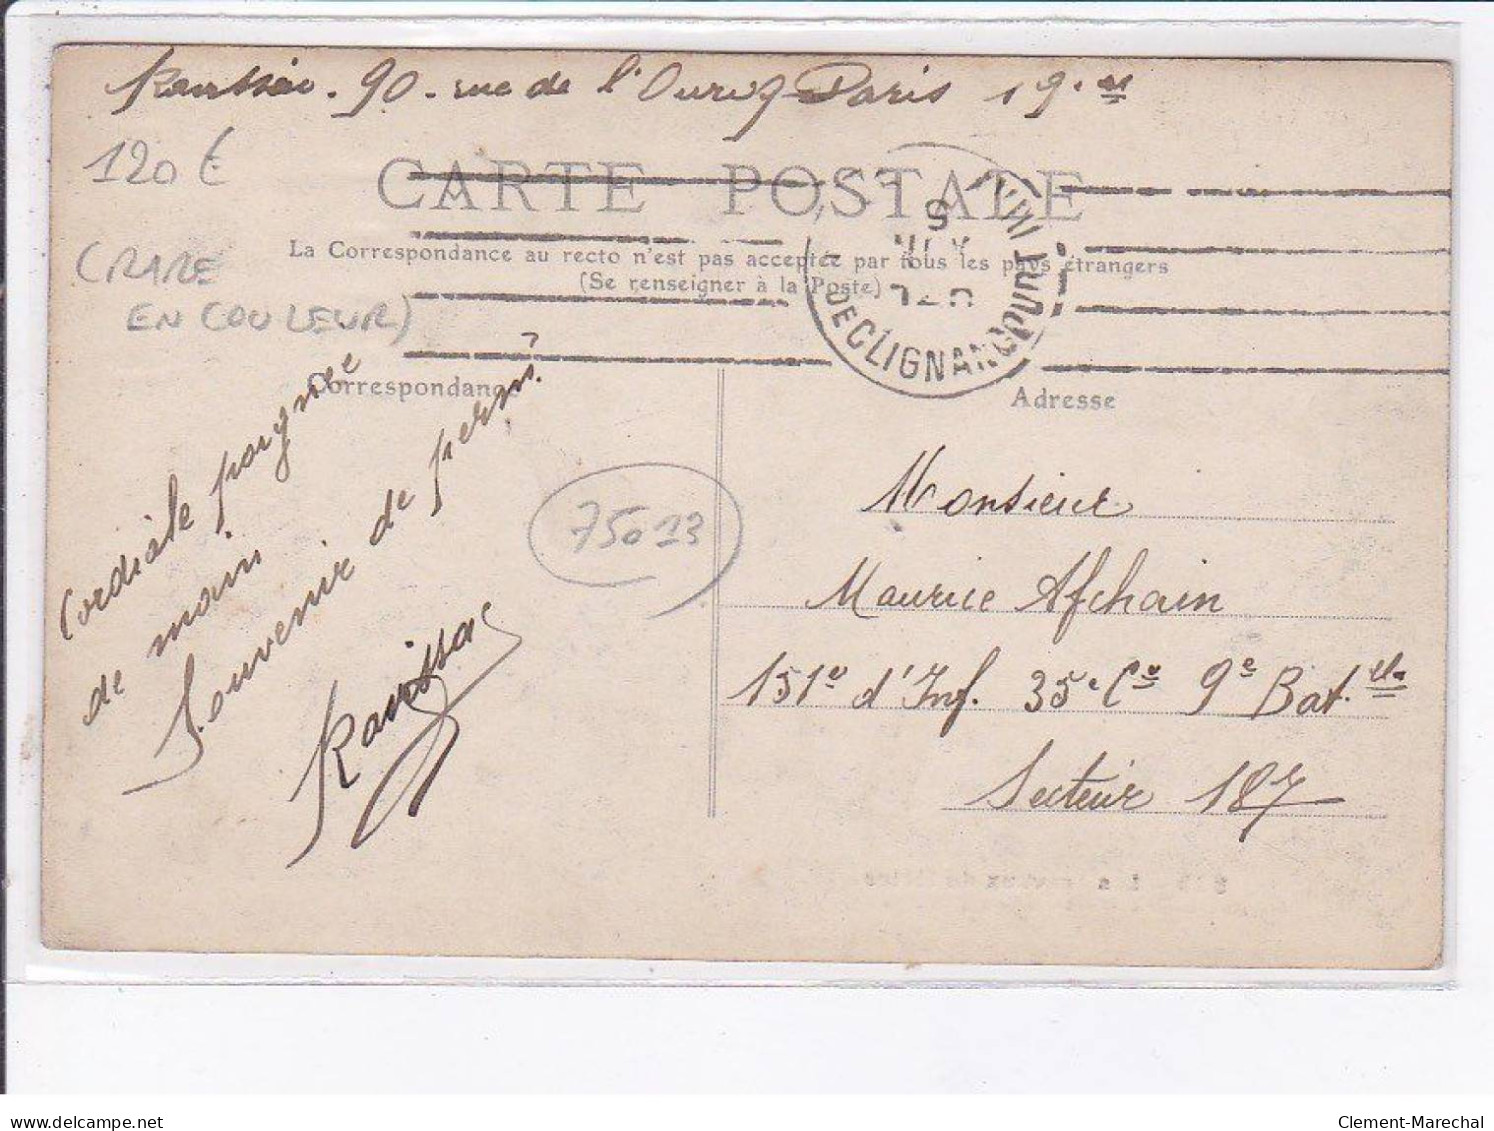 90 - rue de l'Ourcq - Paris 19.
120 €
CARTE POSTALE
La Correspondance au recto n'est pas acceptée par tous les pays étrangers
(Se renseigner à la Poste)
(RARE
EN COULEUR)
Correspondance
Adresse
DE CLIGNANCOURT
Cordiale poignée
de main
Souvenir de perm.
75013
Monsieur
Maurice Afchain
151e d'Inf. 35e Cie 9e Bat.
Secteur 187
delcampe.net
Clement-Marechal